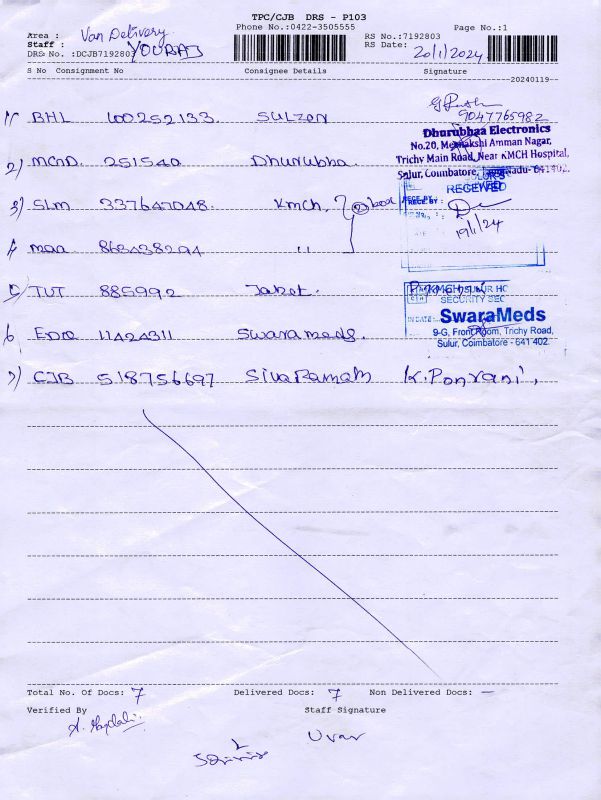 TPC/CJB DRS - P103
Phone No.:0422-3505555
Page No.:1
Area : Van Delivery
Staff : YOURAJ
DRS No. :DCJB7192803
RS No.:7192803
RS Date: 20/1/2024
S No Consignment No Consignee Details Signature
20240119
1) BHL 400252133. SULZON
9047765982
Dhurubhaa Electronics
No.20, Meenakshi Amman Nagar,
Trichy Main Road, Near KMCH Hospital,
Sulur, Coimbatore, Tamil Nadu- 641402.
2) MCND. 251540 Dhurubba.
RECEIVED
3) SLM 337647048. KMCH,
19/1/24
4) maa 863438294 ,,
5) TUT 885992 Jaket.
KMCH SULUR HO
SECURITY SEC
6) EDQ 11424311 Swarameds.
IN DATE:
SwaraMeds
9-G, Front Room, Trichy Road,
Sulur, Coimbatore - 641 402.
7) CJB 518756697 SivaRamam K. Ponrani,
Total No. Of Docs: 7 Delivered Docs: 7 Non Delivered Docs: —
Verified By Staff Signature